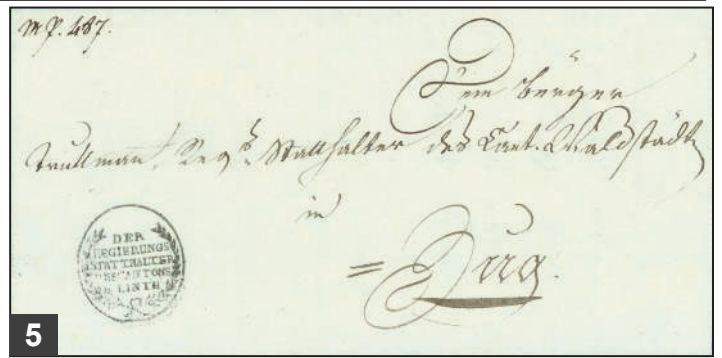 P. 487.
Dem Bürger
Truttman Regs. Statthalter des Cant. Waldstädt
in
= Zug.
DER
REGIERUNGS
STATTHALTER
DES CANTONS
LINTH
5